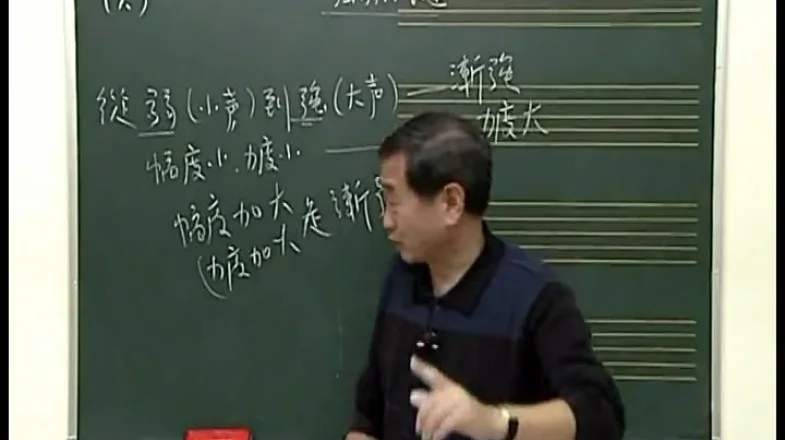 (六)
從弱(小声)到強(大声)—漸強
力度大
幅度小、力度小
幅度加大是漸
(力度加大